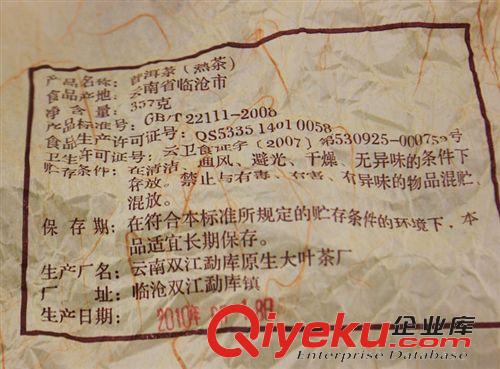 产品名称：普洱茶（熟茶）
食品产地：云南省临沧市
净含量：357克
产品标准号：GB/T 22111-2008
食品生产许可证号：QS5335 1401 0058
卫生许可证号：云卫食证字（2007）第530925-000759号
贮存条件：在清洁、通风、避光、干燥、无异味的条件下
存放。禁止与有毒、有害、有异味的物品混贮、
混放。
保存期：在符合本标准所规定的贮存条件的环境下，本
品适宜长期保存。
生产厂名：云南双江勐库原生大叶茶厂
厂址：临沧双江勐库镇
生产日期：2010年
Qiyeku.com 企业库
Enterprise Database